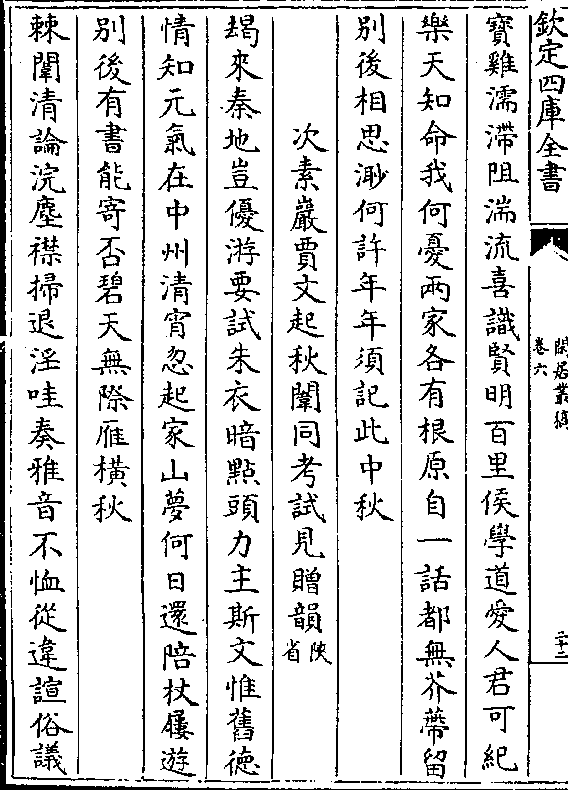 欽定四庫全書
閑居叢稿
卷六
二十二
寶雞濡滯阻湍流喜識賢明百里侯學道愛人君可紀
樂天知命我何憂兩家各有根原自一話都無芥蔕留
別後相思渺何許年年須記此中秋
次素巖賈文起秋闈同考試見贈韻陜省
朅來秦地豈優游要試朱衣暗㸃頭力主斯文惟舊徳
情知元氣在中州清宵忽起家山夢何日還陪杖屨遊
別後有書能寄否碧天無際雁橫秋
棘闈清論浣塵襟掃退淫哇奏雅音不恤從違諠俗議